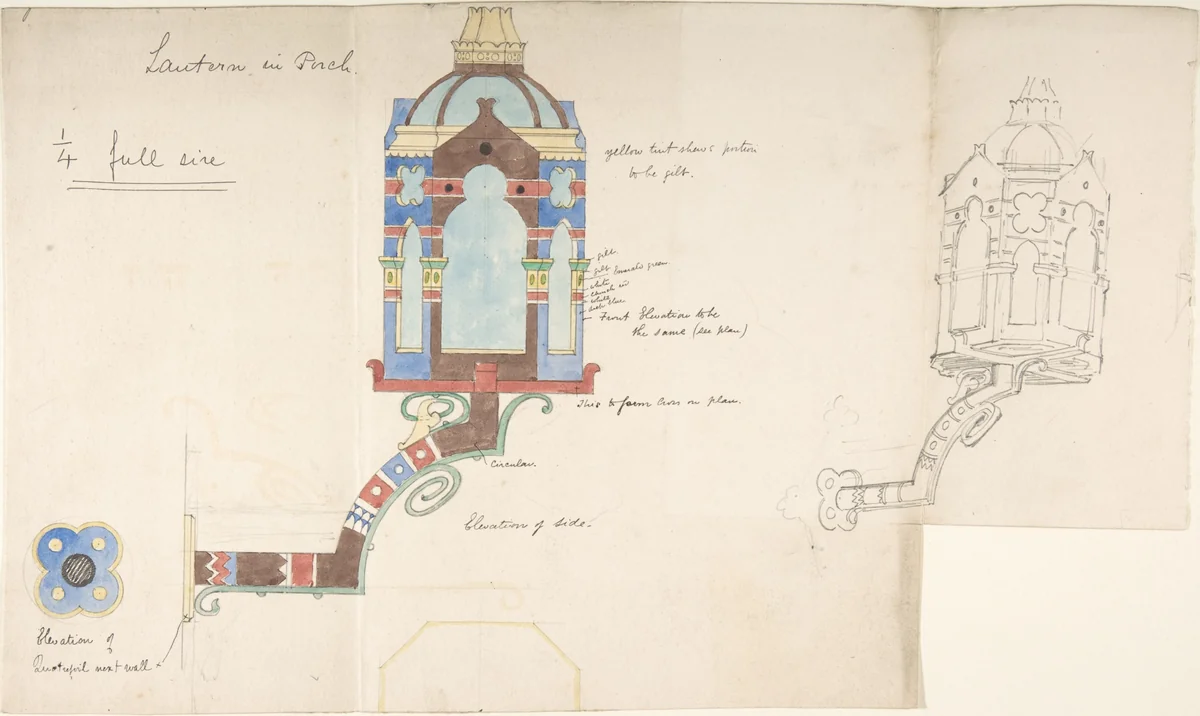 Lantern in Porch.
1/4 full size
yellow tint shews portion
to be gilt.
gilt
gilt Emerald green
white
white
dark blue
Front Elevation to be
the same (see plan)
This to form Cross on plan.
Circular.
Elevation of side-
Elevation of
Quatrefoil next wall